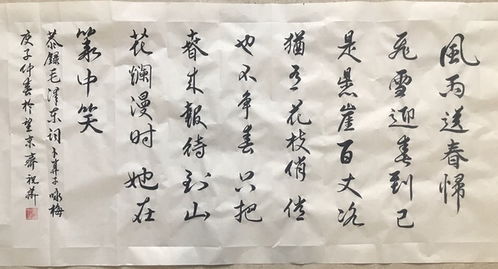 風雨送春歸
飛雪迎春到已
是悬崖百丈冰
猶有花枝俏俏
也不争春只把
春来報待到山
花爛漫时她在
叢中笑
恭録毛澤东词卜算子咏梅
庚子仲春於望京齋祝華